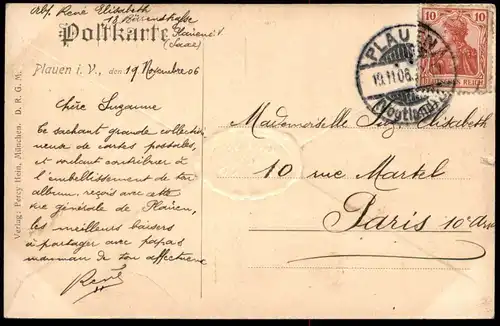 Abs. René Elisabeth
18 Bärenstraße
Postkarte
Plauen i V.
(Saxe)
Plauen i. V., den 19 Novembre 06
10
10
DEUTSCHES REICH
PLAUEN
19.11.06.
(Vogtland)
Chère Suzanne
Te sachant grande collection
neuse de cartes postales,
et voulant contribuer à
l'embellissement de ton
album, reçois avec cette
vue générale de Plauen,
les meilleurs baisers
à partager avec papa
maman de ton affectueux
René
Mademoiselle Suz. Elisabeth
10 rue Martel
Paris 10e Arr
Verlag: Percy Hein, München. D. R. G. M.